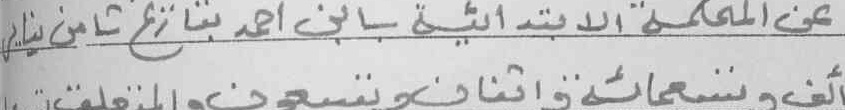 عن المحكمة الابتدائية بابن احمد بتاريخ ثامن يناير
ألف وتسعمائة واثنان وتسعون والمتعلق